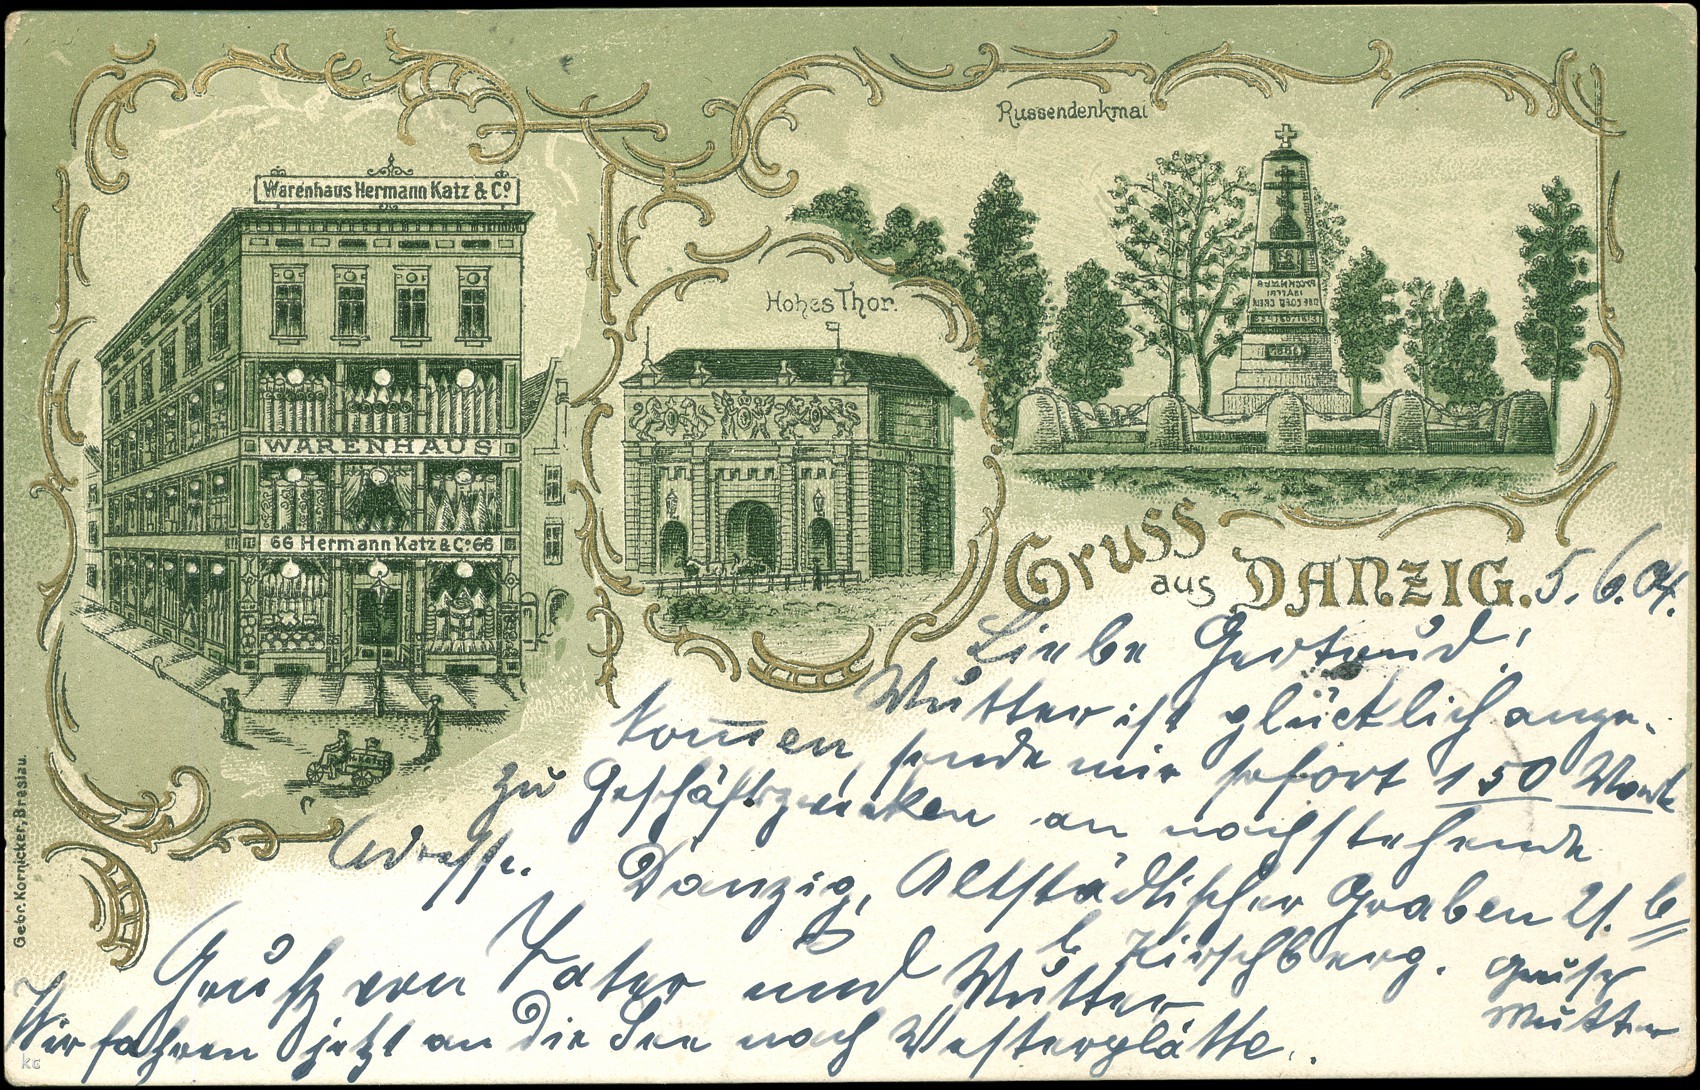 Russendenkmal
Warenhaus Hermann Katz & Co
Hohes Thor.
WARENHAUS
66 Hermann Katz & Co 66
Gruss
aus DANZIG. 5. 6. 04.
Liebe Gertrud!
Mutter ist glücklich ange-
kom̅en, sende mir sofort 150 Mark
zu Geschäftszwecken an nachstehende
Adresse.
Danzig, Altstädtischer Graben 21. b
b. Hirschberg.
Gruß von Vater und Mutter
Wir fahren jetzt an die See nach Westerplätte.
Gruß
Mutter
Gebr. Kornicker, Breslau.
KG